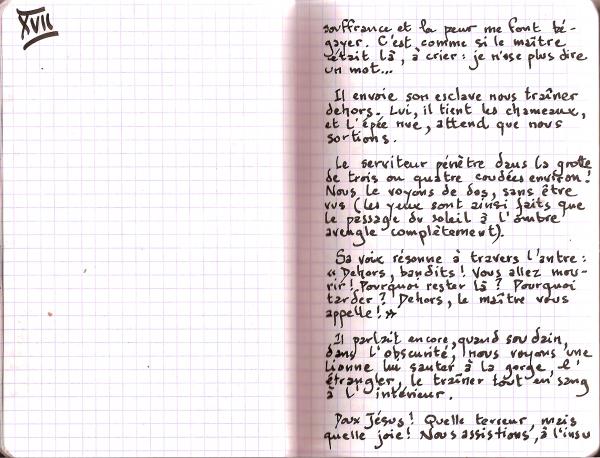 XVII
souffrance et la peur me font bé-
gayer. C'est comme si le maître
était là, à crier : je n'ose plus dire
un mot...
Il envoie son esclave nous traîner
dehors. Lui, il tient les chameaux,
et l'épée nue, attend que nous
sortions.
Le serviteur pénètre dans la grotte
de trois ou quatre coudées environ !
Nous le voyons de dos, sans être
vus (les yeux sont ainsi faits que
le passage du soleil à l'ombre
aveugle complètement).
Sa voix résonne à travers l'antre :
« Dehors, bandits ! Vous allez mou-
rir ! Pourquoi rester là ? Pourquoi
tarder ? Dehors, le maître vous
appelle ! »
Il parlait encore, quand soudain,
dans l'obscurité, nous voyons une
lionne lui sauter à la gorge, l'
étrangler, le traîner tout en sang
à l'intérieur.
Doux Jésus ! Quelle terreur, mais
quelle joie ! Nous assistions, à l'insu